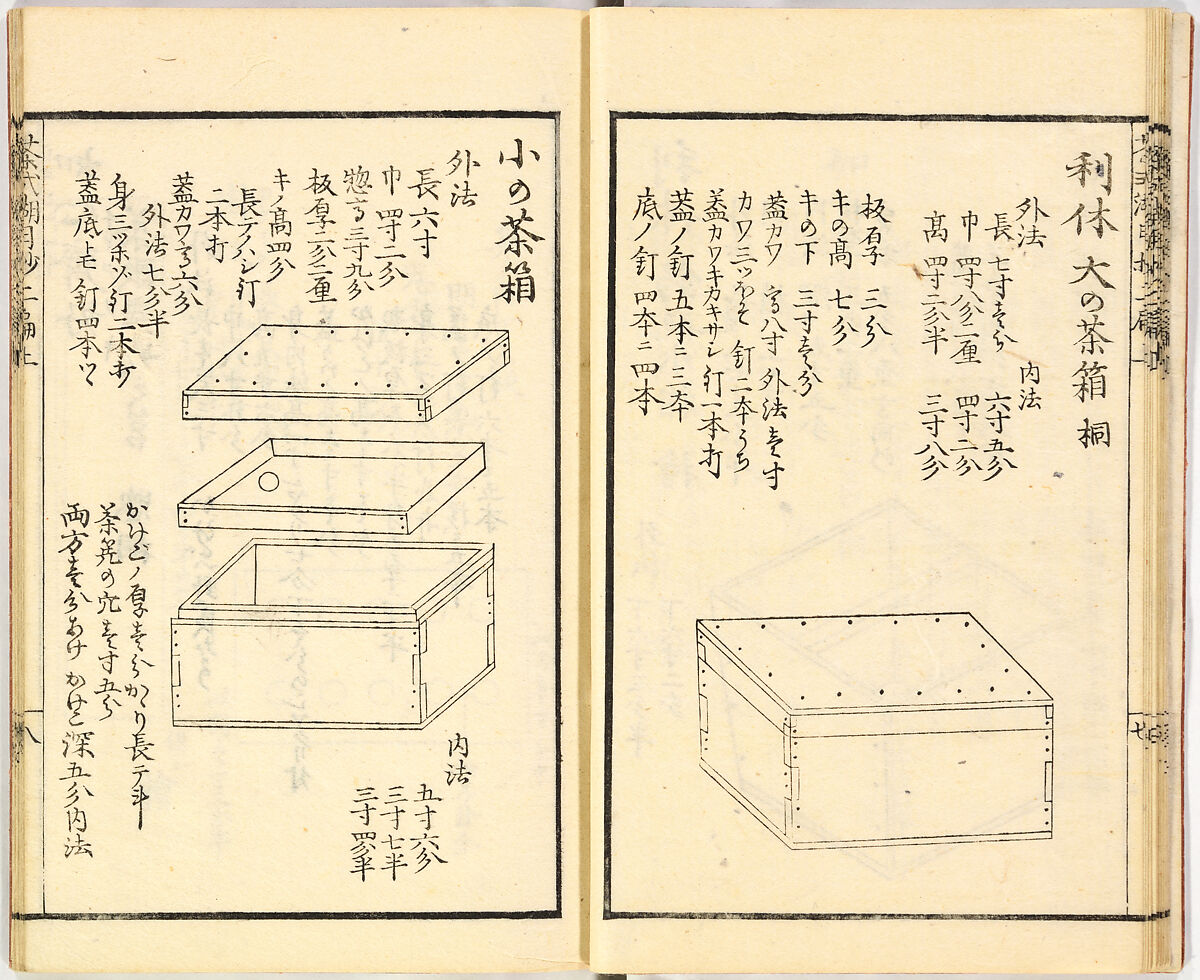 利休大の茶箱 桐
外法 内法
長 七寸壱分 六寸五分
巾 四寸八分二厘 四寸二分
高 四寸二分半 三寸八分
板厚 二分
キの高 七分
キの下 三寸壱分
蓋カワ 高八寸 外法壱寸
カワ三ツほそ 釘二本うち
蓋カワキカキサシ釘一本打
蓋ノ釘 五本ニ三本
底ノ釘 四本ニ四本
七
小の茶箱
外法
長 六寸
巾 四寸二分
惣高 三寸九分
板厚一分二厘
キノ高四分
長テノハシ釘
二本打
蓋カワ高六分
外法七分半
身三ツホゾ釘二本打
蓋底トモ釘四本ツヽ
内法
五寸六分
三寸七半
三寸四分半
かけごノ厚壱分かゝり長テ斗
茶筅の穴壱寸五分
両方壱分あけ かけこ深五分内法
茶式湖月抄 二編上
八